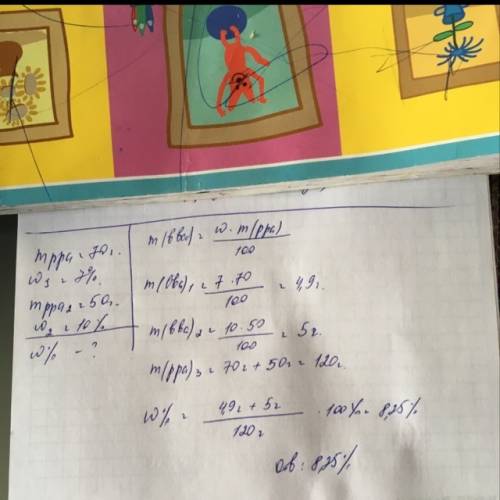 m рра = 70г.
ω₁ = 7%.
m рра₂ = 50г.
ω₂ = 10%
ω% - ?
m(вва) = ω · m(рра) / 100
m(вва)₁ = 7 · 70 / 100 = 4,9г.
m(вва)₂ = 10 · 50 / 100 = 5г.
m(рра)₃ = 70г + 50г = 120г.
ω% = 4,9г + 5г / 120г · 100% = 8,25%
Отв: 8,25%